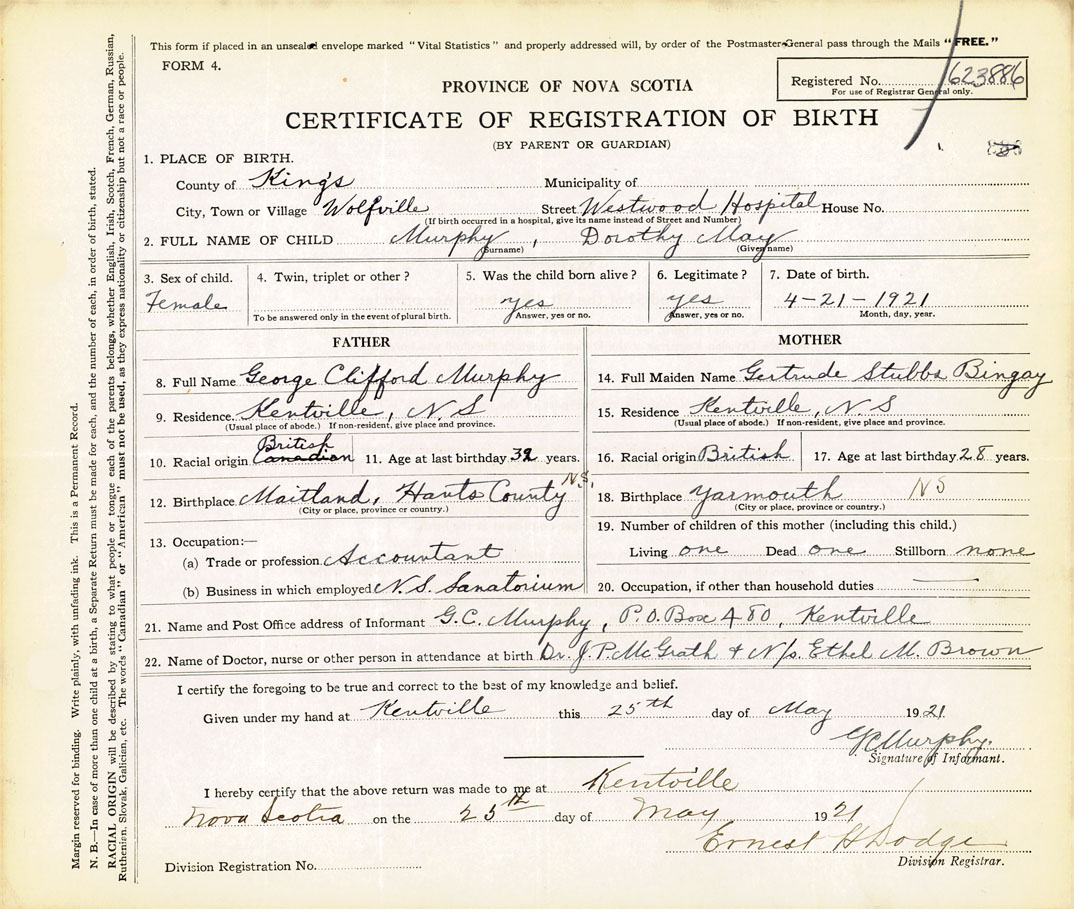 This form if placed in an unsealed envelope marked "Vital Statistics" and properly addressed will, by order of the Postmaster-General pass through the Mails "FREE."
FORM 4.
Registered No. 623886
For use of Registrar General only.
PROVINCE OF NOVA SCOTIA
CERTIFICATE OF REGISTRATION OF BIRTH
(BY PARENT OR GUARDIAN)
1. PLACE OF BIRTH.
County of King's Municipality of
City, Town or Village Wolfville Street Westwood Hospital House No.
(If birth occurred in a hospital, give its name instead of Street and Number)
2. FULL NAME OF CHILD Murphy, Dorothy May
(Surname) (Given name)
3. Sex of child. 4. Twin, triplet or other? 5. Was the child born alive? 6. Legitimate? 7. Date of birth.
Female yes yes 4-21-1921
To be answered only in the event of plural birth. Answer, yes or no. Answer, yes or no. Month, day, year.
FATHER
8. Full Name George Clifford Murphy
9. Residence. Kentville, N S
(Usual place of abode.) If non-resident, give place and province.
British
10. Racial origin Canadian 11. Age at last birthday 32 years.
12. Birthplace Maitland, Hants County N.S.
(City or place, province or country.)
13. Occupation:—
(a) Trade or profession Accountant
(b) Business in which employed N.S. Sanatorium
MOTHER
14. Full Maiden Name Gertrude Stubbs Bingay
15. Residence Kentville, N.S
(Usual place of abode.) If non-resident, give place and province.
16. Racial origin British 17. Age at last birthday 28 years.
18. Birthplace Yarmouth NS
(City or place, province or country.)
19. Number of children of this mother (including this child.)
Living one Dead one Stillborn none
20. Occupation, if other than household duties
21. Name and Post Office address of Informant G.C. Murphy, P.O. Box 480, Kentville
22. Name of Doctor, nurse or other person in attendance at birth Dr. J.P. McGrath + N/s. Ethel M. Brown
I certify the foregoing to be true and correct to the best of my knowledge and belief.
Given under my hand at Kentville this 25th day of May 1921.
GCMurphy.
Signature of Informant.
I hereby certify that the above return was made to me at Kentville
Nova Scotia on the 25th day of May 1921
Ernest H Dodge
Division Registrar.
Division Registration No.
Margin reserved for binding. Write plainly, with unfading ink. This is a Permanent Record.
N. B.—In case of more than one child at a birth, a Separate Return must be made for each, and the number of each, in order of birth, stated.
RACIAL ORIGIN will be described by stating to what people or tongue each of the parents belongs, whether English, Irish, Scotch, French, German, Russian,
Ruthenian, Slovak, Galician, etc. The words "Canadian" or "American" must not be used, as they express nationality or citizenship but not a race or people.